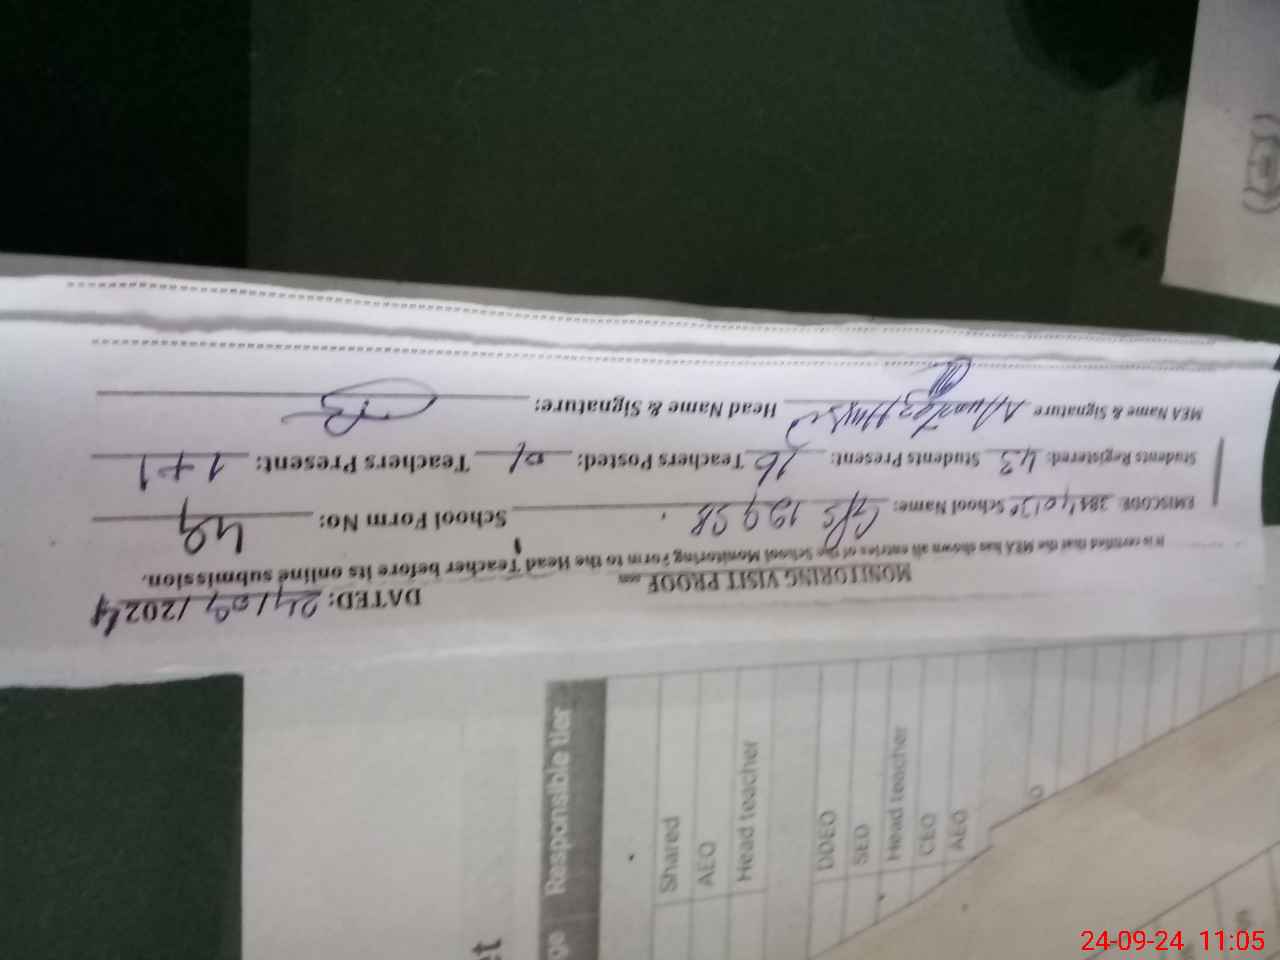 MONITORING VISIT PROOF
DATED: 24/09/2024
It is certified that the MEA has shown all entries of the School Monitoring Form to the Head Teacher before its online submission.
EMISCODE: School Name: 129 SB School Form No: 49
Students Registered: 43 Students Present: 16 Teachers Posted: 01 Teachers Present: 1+1
MEA Name & Signature Head Name & Signature:
Responsible tier
Shared
AEO
Head teacher
DDEO
SED
Head teacher
CEO
AEO
24-09-24 11:05